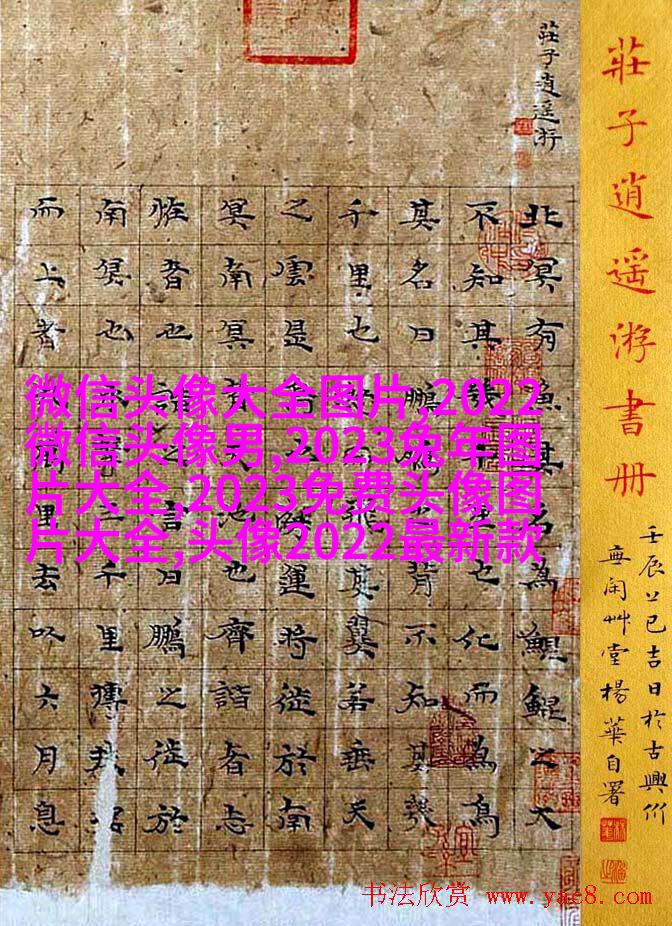 莊子逍遥游書册
壬辰上巳吉日於古興竹
無闲艸堂楊華自署
莊子逍遥游
北冥有魚其名為鯤鯤之大
不知其幾千里也化而為鳥
其名曰鵬鵬之背不知其幾
千里也怒而飛其翼若垂天
之雲是鳥也海運將徙於南
冥南冥者天池也齊諧者志
恠者也諧之言曰鵬之徙於
南冥也水擊三千里摶扶搖
而上者九萬里去以六月息
微信头像大全图片,2022
微信头像男,2023兔年图
片大全,2023免费头像图
片大全,头像2022最新款
书法欣赏 www.yac8.com